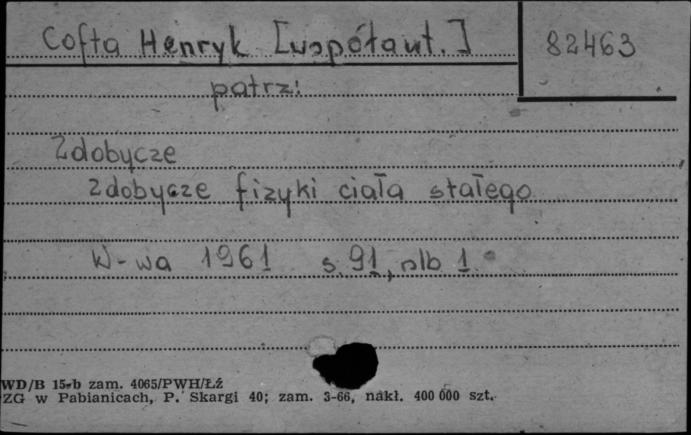 Cofta Henryk [współaut.] 82463
patrz:
Zdobycze
Zdobycze fizyki ciała stałego
W-wa 1961 s. 91, nlb 1.
WD/B 15-b zam. 4065/PWH/Łź
ZG w Pabianicach, P. Skargi 40; zam. 3-66, nakł. 400 000 szt.